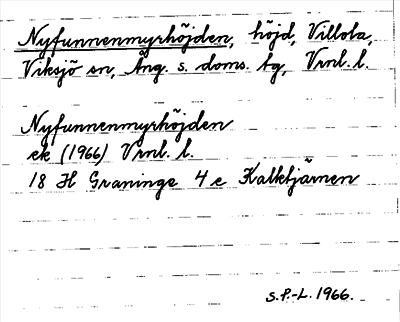 Nyfunnenmyrhöjden, höjd, Villola,
Viksjö sn, Ång. s. doms. tg, Vrnl. l.
Nyfunnenmyrhöjden
ek (1966) Vrnl. l.
18 H Graninge 4 e Kalktjärnen
S.P.-L. 1966.